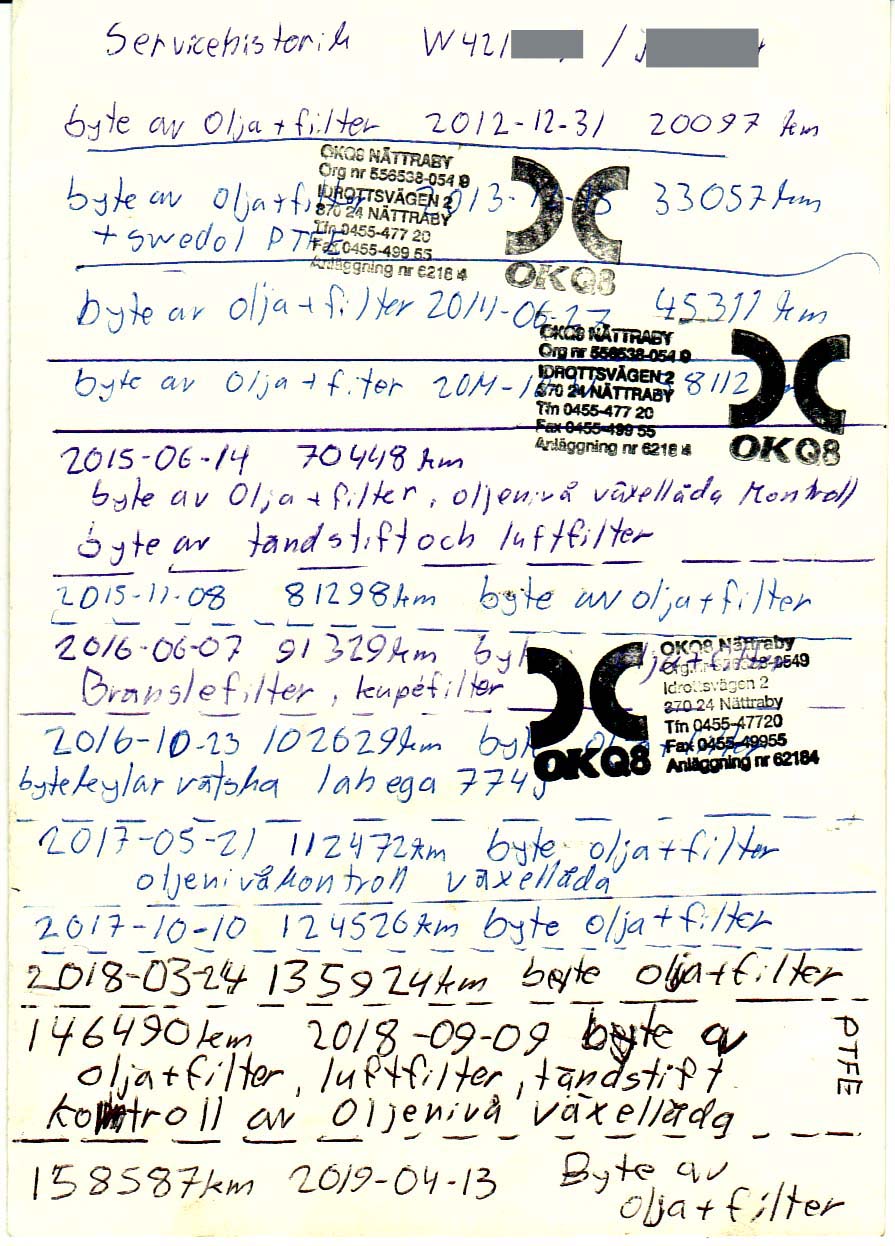 Servicehistorik W421 /
byte av olja + filter 2012-12-31 20097 km
OKQ8 NÄTTRABY
Org nr 556538-054 9
IDROTTSVÄGEN 2
370 24 NÄTTRABY
Tfn 0455-477 20
Fax 0455-499 55
Anläggning nr 6218 4
OKQ8
byte av olja + filter 2013-12-15 33057 km
+ swedol PTFE
byte av olja + filter 2014-06-27 45311 km
OKQ8 NÄTTRABY
Org nr 556538-054 9
IDROTTSVÄGEN 2
370 24 NÄTTRABY
Tfn 0455-477 20
Fax 0455-499 55
Anläggning nr 6218 4
OKQ8
byte av olja + filter 8112
2015-06-14 70448 km
byte av olja + filter, oljenivå växellåda kontroll
byte av tändstift och luftfilter
2015-11-08 81298 km byte av olja + filter
2016-06-07 91329 km byte olja + filter
Bränslefilter, kupéfilter
OKQ8 Nättraby
Org.nr 556538-0549
Idrottsvägen 2
370 24 Nättraby
Tfn 0455-47720
Fax 0455-49955
Anläggning nr 62184
OKQ8
2016-10-23 102629 km byte olja + filter
byte kylar vätska lahega 774
2017-05-21 112472 km byte olja + filter
oljenivåkontroll växellåda
2017-10-10 124526 km byte olja + filter
2018-03-24 135924 km byte olja + filter
146490 km 2018-09-09 byte a
olja + filter, luftfilter, tändstift
PTFE
kontroll av Oljenivå växellåda
158587 km 2019-04-13 Byte av
olja + filter